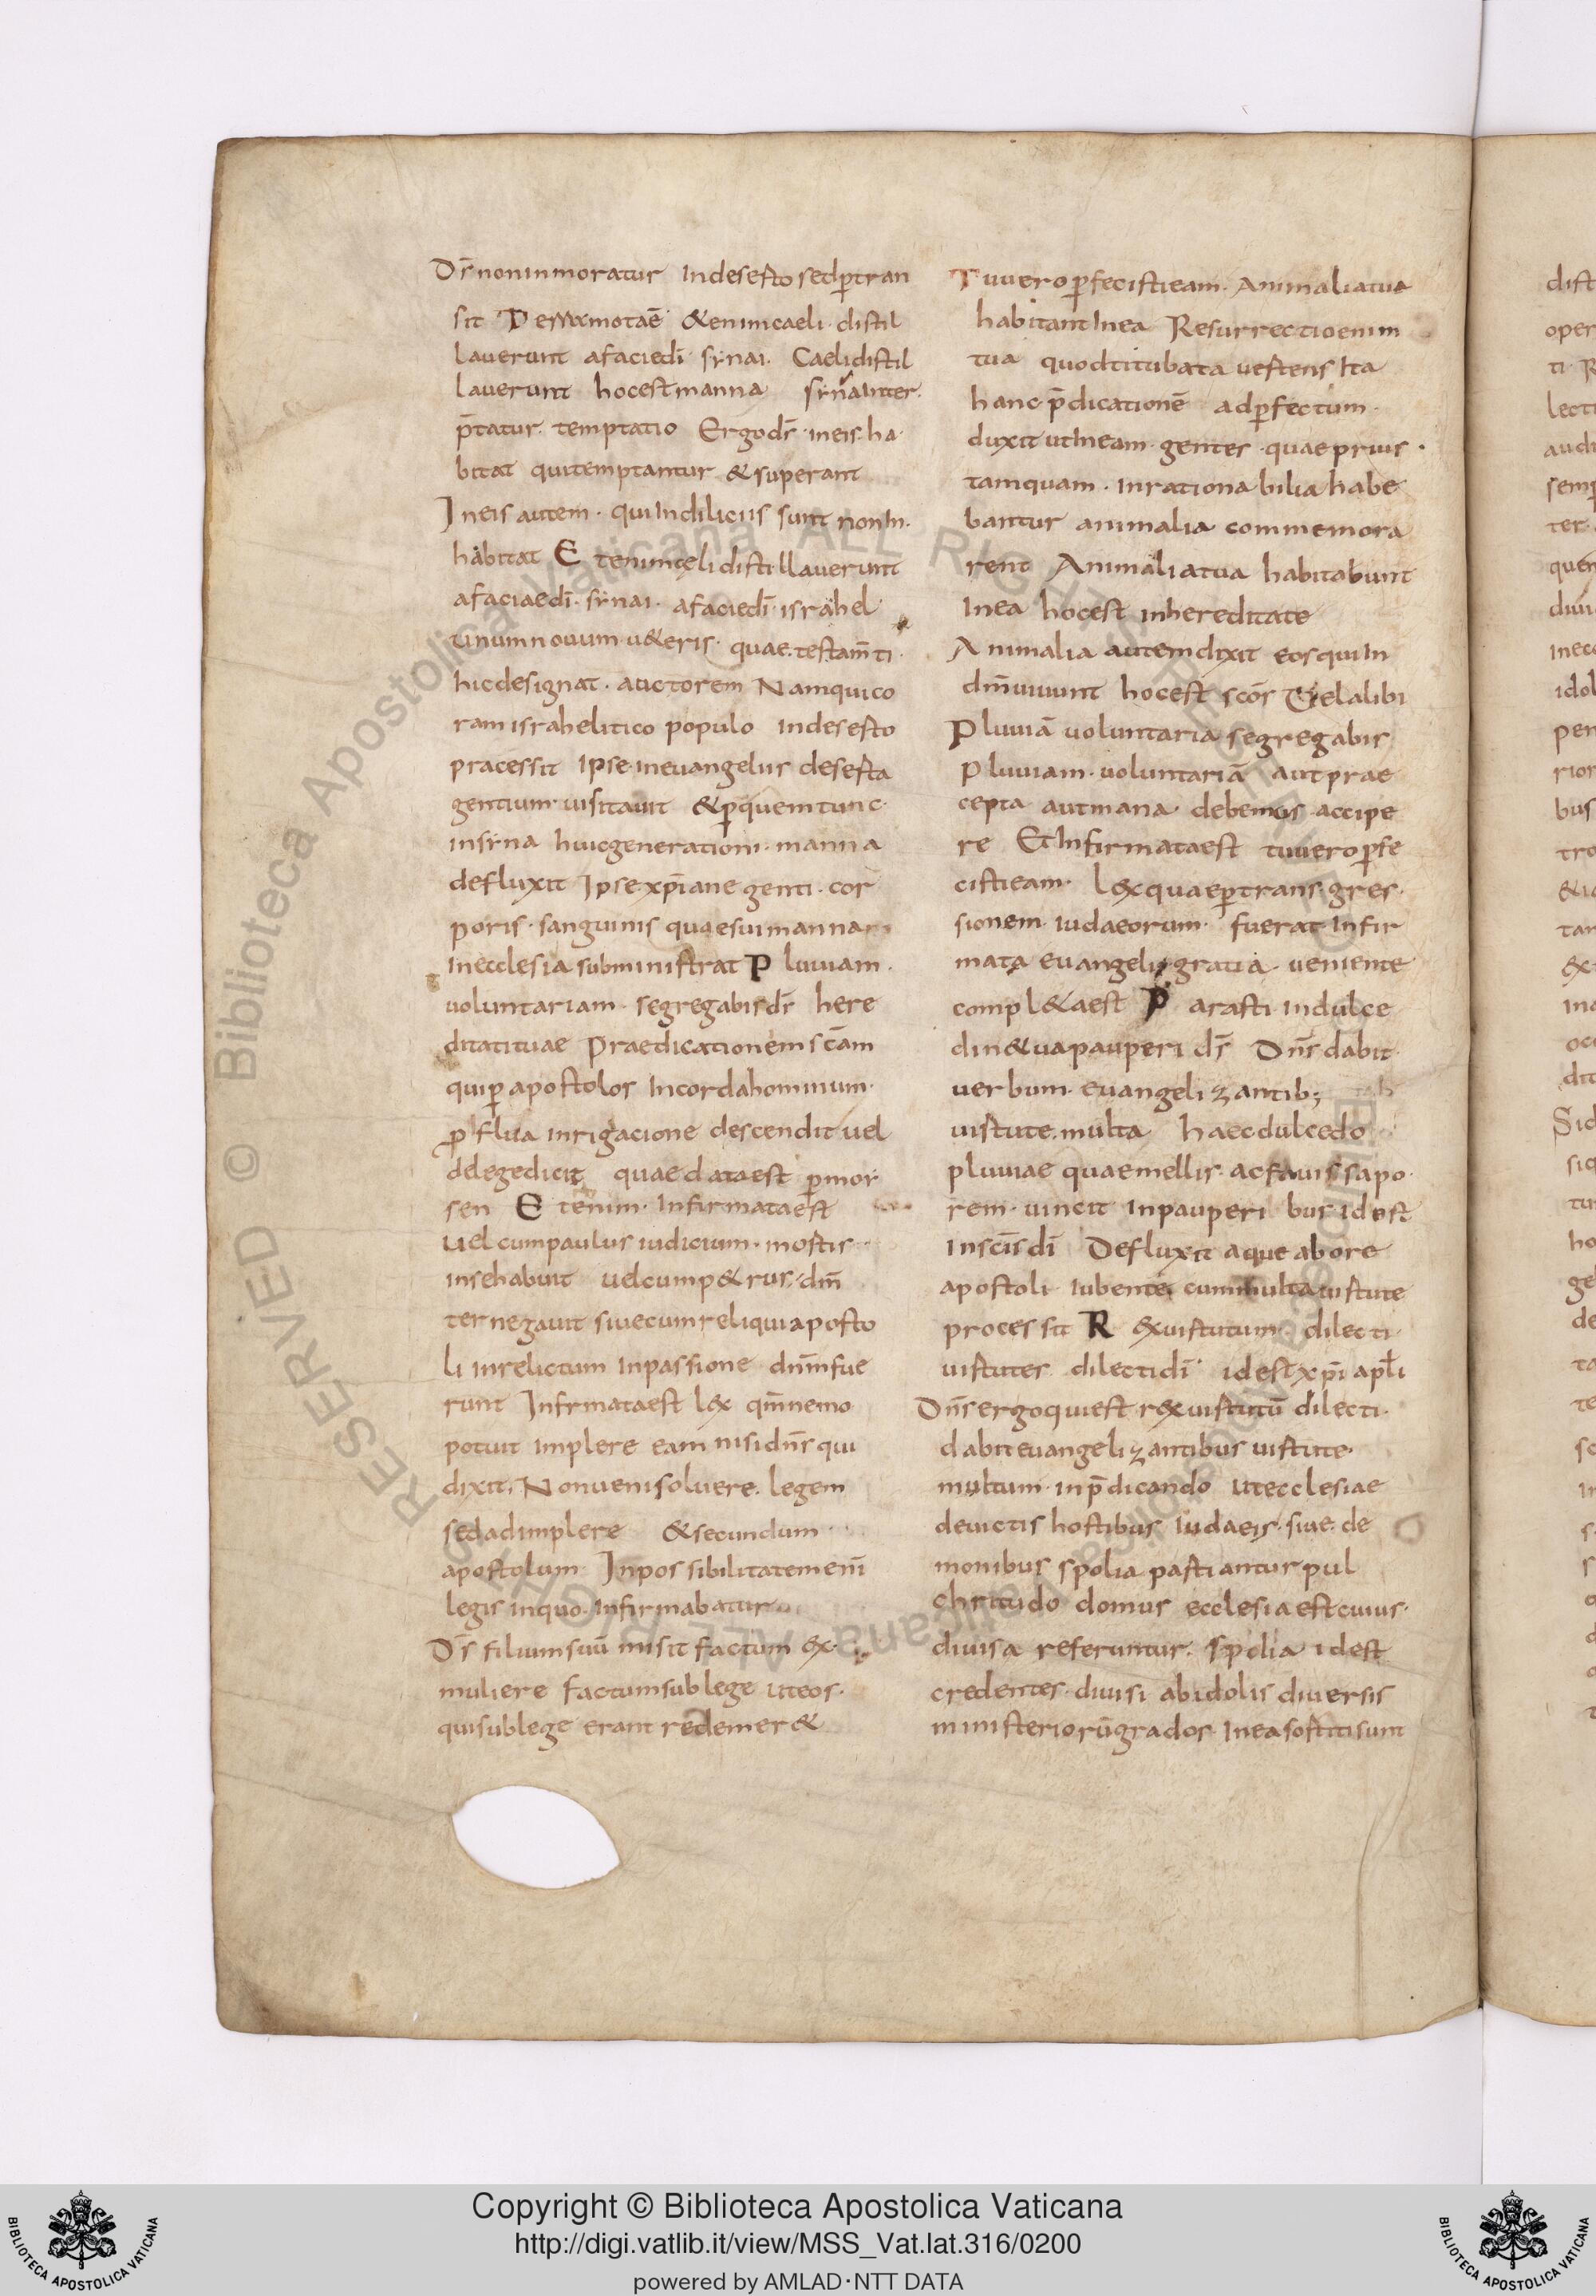 Ds̄ non inmoratur In deserto sed ꝑtran
sit · Terra mota ē & enim caeli · distil
laverunt a facie dī · synai · Caeli distil
laverunt hoc est manna syna inter
p̄tatur temptatio Ergo ds̄ · in eis · ha
bitat qui temptantur & superant
In eis autem · qui In diliciis sunt non In
habitat E tenim cęli distillaverunt
a faciae dī · synai · a facie dī · israhel
unum novum v&eris · quae testam̄ti
hic designat · auctorem Nam qui co
ram israhelitico populo in deserto
pracessit Ipse in evangeliis deserta
gentium visitavit & ꝑ quem tunc
in syna huic generationi · manna
defluxit Ipse xp̄iane genti · cor
poris · sanguinis quae sui manna
In ecclesia subministrat P luviam
voluntariam · segregabis ds̄ here
ditati tuae Praedicationem scām
qui ꝑ apostolos In corda hominum ·
ꝓflua inrigacione descendit vel
de lege dicit quae data est ꝑ mor
sen E tenim · Infirmata est
Vel cum paulus iudicium · mortis
in se habuit vel cum p&rus · dm̄
ter negavit sive cum reliqui aposto
li in relictum in passione dnm̄ fue
runt Infirmata est lex qm̄ nemo
potuit implere eam nisi dns̄ qui
dixit · Non veni solvere · legem
sed adimplere & secundum
apostolum Inpossibilitatem eni̅
legis in quo · infirmabatur
Ds̄ filium suū misit factum ex
muliere factum sub lege ut eos ·
qui sub lege erant redemer&
Tu vero ꝑfecisti eam · Animalia tua
habitant In ea Resurrectio enim
tua quod titubata vertens Ita
hanc p̄dicationē ad ꝑfectum
duxit ut In eam · gentes · quae prius ·
tamquam · inrationabilia habe
bantur animalia commemora
rent Animalia tua habitabunt
In ea hoc est in hereditate
Animalia autem dixit eos qui In
dm̄ vivunt hoc est scōs Vel alibi
Pluviā voluntaria segregabis
Pluviam · voluntariā aut prae
cepta aut mana debemus accipe
re Et Infirmata est tu vero ꝑfe
cisti eam · lex quae ꝑ transgres
sionem iudaeorum · fuerat Infir
mata evangelii gratia · veniente
compl&a est P arasti in dulce
din& ua pauperi ds̄ Dns̄ dabit
verbum · evangelizantib;
virtute · multa haec dulcedo
pluviae quae mellis · ac favis sapo
rem · vincit in pauperibus id est
In scīs dī Defluxit aque ab ore
apostoli iubente cum multa virtute
processit R ex virtutum · dilecti
virtutes dilecti dī id est xp̄i apl̄i
Dns̄ ergo qui est rex virtutū dilecti
dabit evangelizantibus virtute
multum · in p̄dicando ut ecclesiae
devictis hostibus iudaeis · sive · de
monibus spolia partiantur pul
chritudo domus ecclesia est cuius ·
divisa referuntur · spolia id est
credentes · divisi ab idolis diversis
ministeriorū grados · In ea sortiti sunt
Copyright © Biblioteca Apostolica Vaticana
http://digi.vatlib.it/view/MSS_Vat.lat.316/0200
powered by AMLAD·NTT DATA